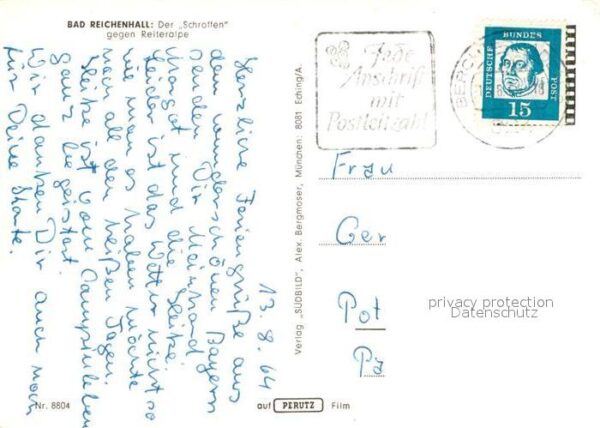 BAD REICHENHALL: Der „Schroffen"
gegen Reiteralpe
13.8.64
Herzliche Feriengrüße aus
dem wunderschönen Bayern
senden Dir Meinhard
Margat und die Heike.
Leider ist das Wetter nicht so
wie man es haben möchte
nach all den heißen Tagen.
Heike ist vom Campingleben
ganz begeistert.
Wir danken Dir auch noch
für Deine Karte.
Nr. 8804
Verlag „SÜDBILD", Alex. Bergmoser, München: 8081 Eching/A.
auf PERUTZ Film
Jede
Anschrift
mit
Postleitzahl
DEUTSCHE BUNDES POST
15
Frau
Ger
Pot
Pa
privacy protection
Datenschutz